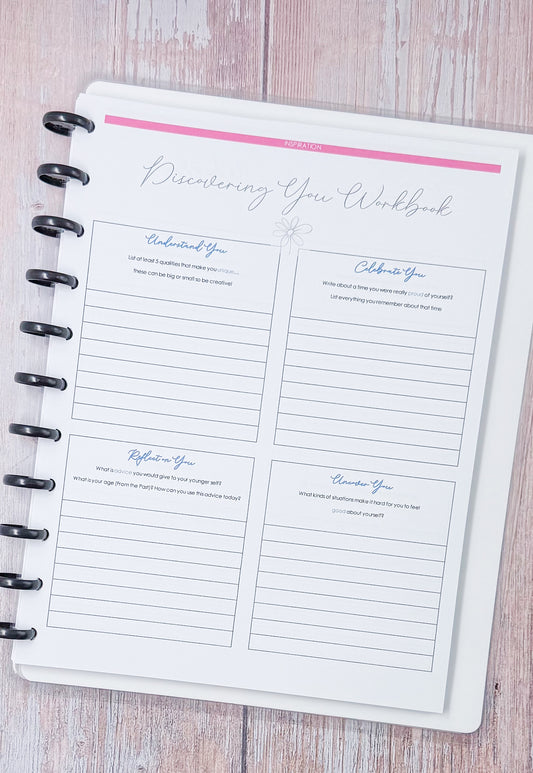 INSPIRATION
Discovering You Workbook
Understand You
List at least 5 qualities that make you unique....
these can be big or small so be creative!
Celebrate You
Write about a time you were really proud of yourself?
List everything you remember about that time
Reflect on You
What is advice you would give to your younger self?
What is your age (from the Past)? How can you use this advice today?
Uncover You
What kinds of situations make it hard for you to feel
good about yourself?